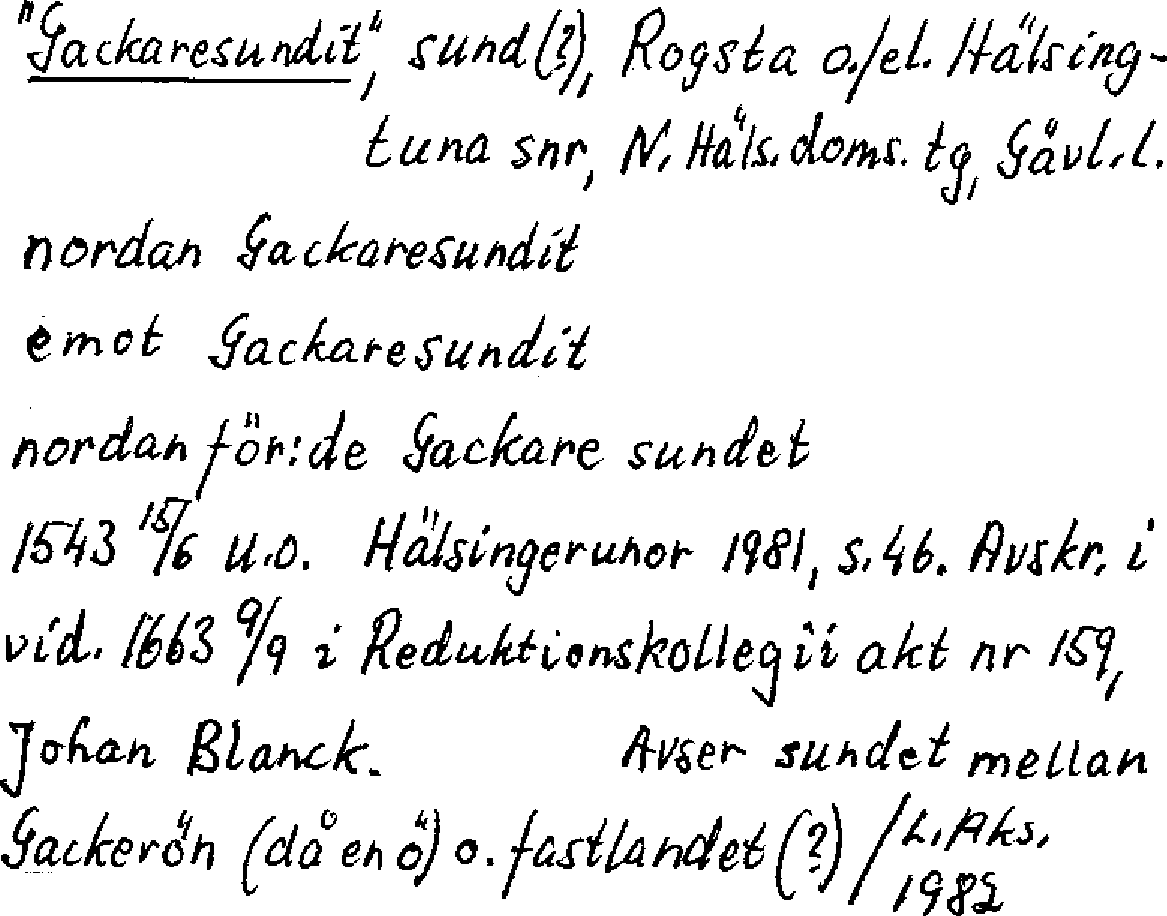 "Gackaresundit", sund(?), Rogsta o./el. Hälsing-
tuna snr, N. Häls. doms. tg, Gävl. l.
nordan Gackaresundit
emot Gackaresundit
nordan för:de Gackare sundet
1543 15/6 u.o. Hälsingerunor 1981, s. 46. Avskr. i
vid. 1663 9/9 i Reduktionskollegii akt nr 159,
Johan Blanck. Avser sundet mellan
Gackerön (då en ö) o. fastlandet (?) / L. Aks.
1982